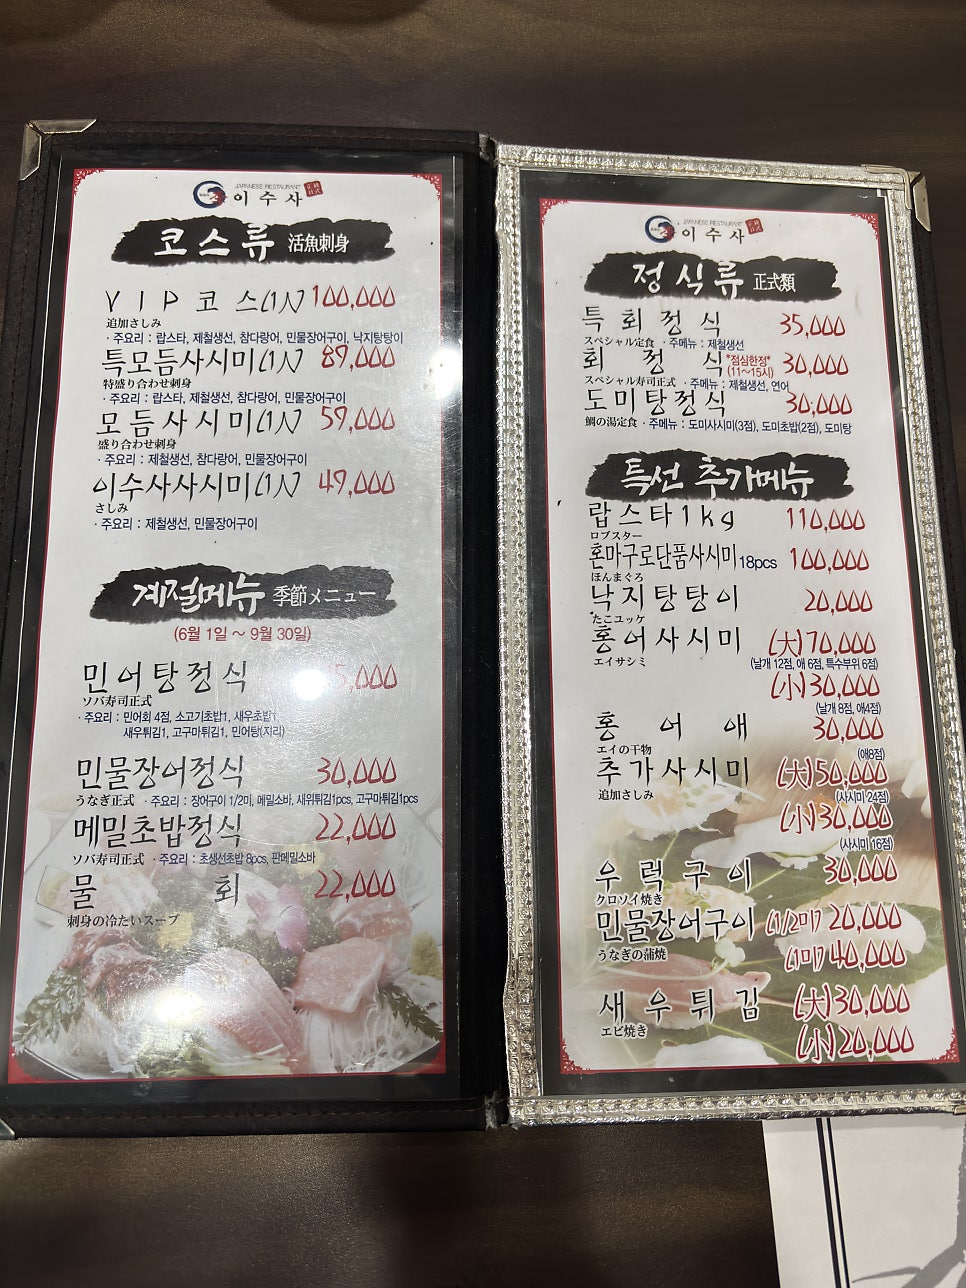 JAPANESE RESTAURANT
이수사
코스류 活魚刺身
VIP코스(1人) 100,000
追加さしみ
· 주요리 : 랍스타, 제철생선, 참다랑어, 민물장어구이, 낙지탕탕이
특모듬사시미(1人) 89,000
特盛り合わせ刺身
· 주요리 : 랍스타, 제철생선, 참다랑어, 민물장어구이
모듬사시미(1人) 59,000
盛り合わせ刺身
· 주요리 : 제철생선, 참다랑어, 민물장어구이
이수사사시미(1人) 49,000
さしみ
· 주요리 : 제철생선, 민물장어구이
계절메뉴 季節メニュー
(6월 1일 ~ 9월 30일)
민어탕정식 5,000
ソバ寿司正式
· 주요리 : 민어회 4점, 소고기초밥1, 새우초밥1,
새우튀김1, 고구마튀김1, 민어탕(지리)
민물장어정식 30,000
うなぎ正式 · 주요리 : 장어구이 1/2미, 메밀소바, 새위튀김1pcs, 고구마튀김1pcs
메밀초밥정식 22,000
ソバ寿司正式 · 주요리 : 초생선초밥 8pcs, 판메밀소바
물회 22,000
刺身の冷たいスープ
JAPANESE RESTAURANT
이수사
정식류 正式類
특회정식 35,000
スペシャル定食 · 주메뉴 : 제철생선
회정식 *점심한정* (11~15시) 30,000
スペシャル寿司正式 · 주메뉴 : 제철생선, 연어
도미탕정식 30,000
鯛の湯定食 · 주메뉴 : 도미사시미(3점), 도미초밥(2점), 도미탕
특선 추가메뉴
랍스타1kg 110,000
ロブスター
혼마구로단품사시미 18pcs 100,000
ほんまぐろ
낙지탕탕이 20,000
たこユッケ
홍어사시미 (大)70,000
エイサシミ (날개 12점, 애 6점, 특수부위 6점)
(小)30,000
(날개 8점, 애4점)
홍어애 30,000
エイの干物 (애8점)
추가사시미 (大)50,000
追加さしみ (사시미 24점)
(小)30,000
(사시미 16점)
우럭구이 30,000
クロソイ焼き
민물장어구이 (1/2미) 20,000
うなぎの蒲焼 (1미) 40,000
새우튀김 (大)30,000
エビ焼き
(小)20,000